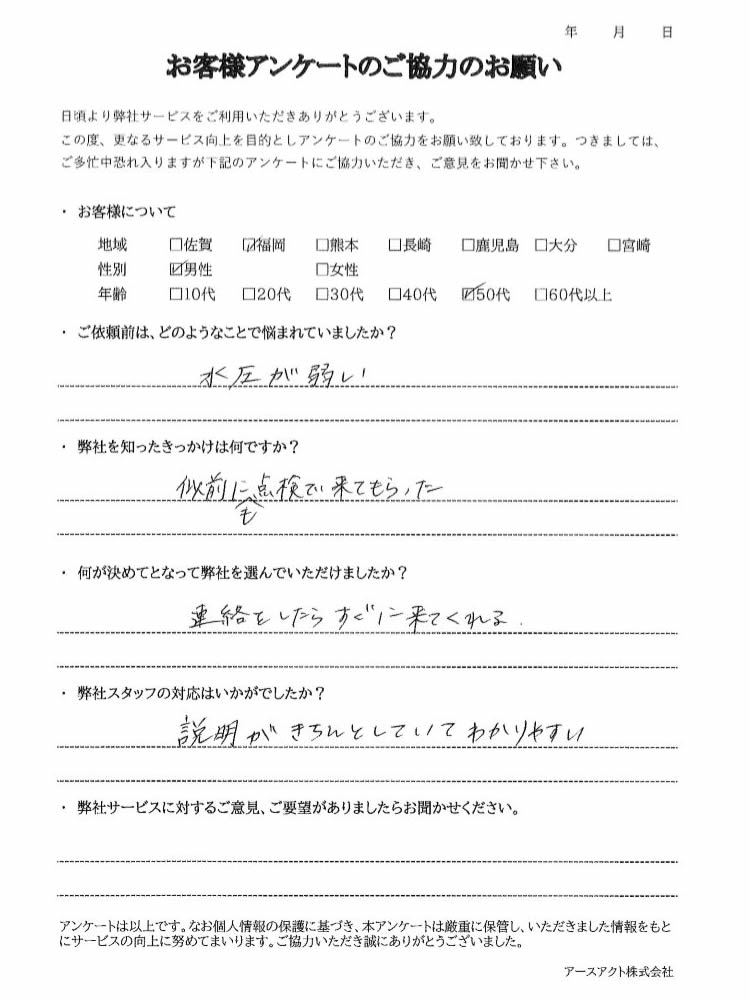 年 月 日
お客様アンケートのご協力のお願い
日頃より弊社サービスをご利用いただきありがとうございます。
この度、更なるサービス向上を目的としアンケートのご協力をお願い致しております。つきましては、
ご多忙中恐れ入りますが下記のアンケートにご協力いただき、ご意見をお聞かせ下さい。
・ お客様について
地域 □佐賀 ☑福岡 □熊本 □長崎 □鹿児島 □大分 □宮崎
性別 ☑男性 □女性
年齢 □10代 □20代 □30代 □40代 ☑50代 □60代以上
・ ご依頼前は、どのようなことで悩まれていましたか？
水圧が弱い
・ 弊社を知ったきっかけは何ですか？
似前にも点検で来てもらった
・ 何が決めてとなって弊社を選んでいただけましたか？
連絡をしたらすぐに来てくれる.
・ 弊社スタッフの対応はいかがでしたか？
説明がきちんとしていてわかりやすい
・ 弊社サービスに対するご意見、ご要望がありましたらお聞かせください。
アンケートは以上です。なお個人情報の保護に基づき、本アンケートは厳重に保管し、いただきました情報をもと
にサービスの向上に努めてまいります。ご協力いただき誠にありがとうございました。
アースアクト株式会社